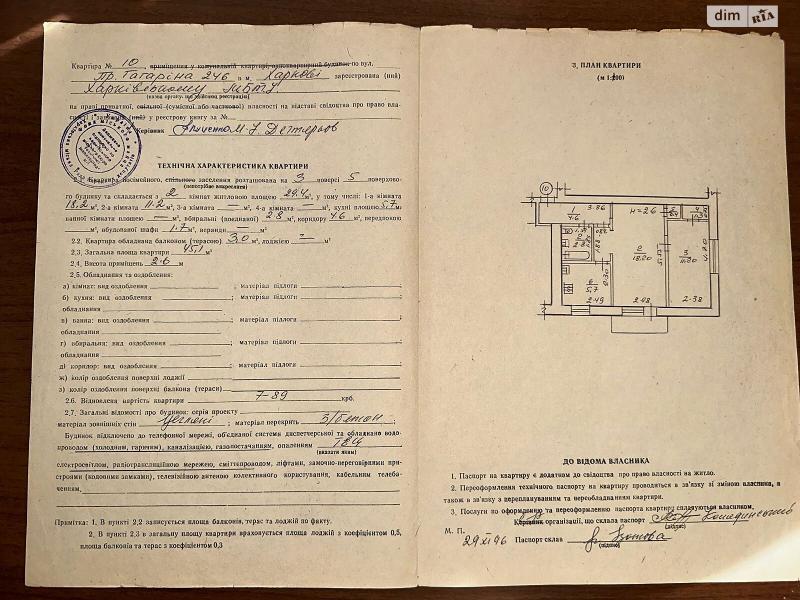 dim RIA
Квартира № 10, приміщення у комунальній квартирі, одноквартирний будинок по вул.
Пр. Гагаріна 246 в м. Харкові зареєстрована (ний)
Харківському МБТІ
(назва органу, що здійснює реєстрацію)
на праві приватної, спільної (сумісної або часткової) власності на підставі свідоцтва про право вла-
сності і записана (ний) у реєстрову книгу за №
Керівник
ТЕХНІЧНА ХАРАКТЕРИСТИКА КВАРТИРИ
2.1. Квартира посімейного, спільного заселення розташована на 3 поверсі 5 поверхово-
(непотрібне викреслити)
го будинку та складається з 2 кімнат житловою площею 29.4 м², у тому числі: 1-а кімната
18.2 м², 2-а кімната 11.2 м², 3-а кімната — м², 4-а кімната — м², кухні площею 5.7 м²,
ванної кімнати площею — м², вбиральні (поєднаної) 2.8 м², коридору 4.6 м², передпокою
— м², вбудованої шафи 1.7 м², веранди — м².
2.2. Квартира обладнана балконом (терасою) 3,0 м², лоджією — м²
2.3. Загальна площа квартири 45,1 м²
2.4. Висота приміщень 2.6 м
2.5. Обладнання та оздоблення:
а) кімнат: вид оздоблення ; матеріал підлоги ;
б) кухня: вид оздоблення ; матеріал підлоги ;
обладнання
в) ванна: вид оздоблення ; матеріал підлоги ;
обладнання
г) вбиральня: вид оздоблення ; матеріал підлоги ;
обладнання
д) коридор: вид оздоблення ; матеріал підлоги ;
ж) колір оздоблення поверхні лоджії
з) колір оздоблення поверхні балкона (тераси)
2.6. Відновлена вартість квартири 7-89 крб.
2.7. Загальні відомості про будинок: серія проекту
матеріал зовнішніх стін цегляні ; матеріал перекрить З/бетон ;
Будинок підключено до телефонної мережі, об'єднаної системи диспетчерської та обладнано водо-
проводом (холодним, гарячим), каналізацією, газопостачанням, опаленням ТЕЦ
(вказати яким)
електросвітлом, радіотрансляційною мережею, сміттєпроводом, ліфтами, замочно-переговорними при-
строями (кодовими замками), телевізійною антеною колективного користування, кабельним телеба-
ченням,
Примітка: 1. В пункті 2,2 записується площа балконів, терас та лоджій по факту.
2. В пункті 2,3 в загальну площу квартири враховується площа лоджій з коефіцієнтом 0,5,
площа балконів та терас з коефіцієнтом 0,3
3. ПЛАН КВАРТИРИ
(м 1:200)
10
1
4.6
3.86
н=2.6
2
18.20
3
11.20
2.8
6
5.7
2.30
2.49
2.98
2.38
ДО ВІДОМА ВЛАСНИКА
1. Паспорт на квартиру є додатком до свідоцтва про право власності на житло.
2. Переоформлення технічного паспорту на квартиру проводиться в зв'язку зі зміною власника, а
також в зв'язку з переплануванням та переобладнанням квартири.
3. Послуги по оформленню та переоформленню паспорта квартир сплачуються власником.
Керівник організації, що склала паспорт
(підпис)
М. П.
29 XI 96 Паспорт склав
(підпис)